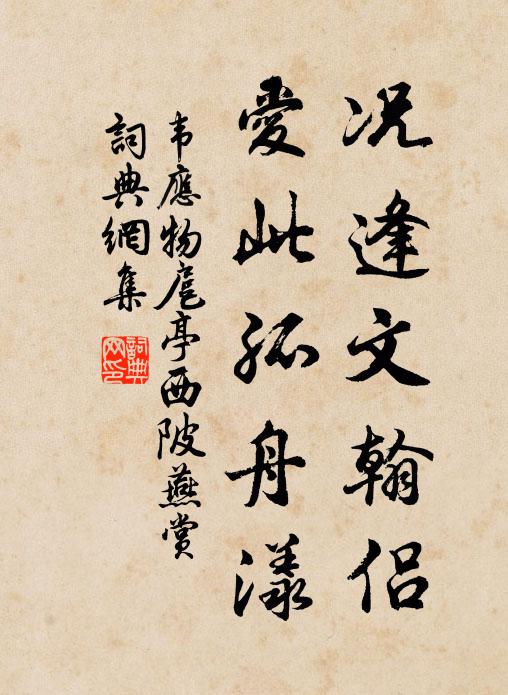 况逢文翰侣
愛此孤舟漾
韦應物扈亭西陂燕赏
詞典網集
詞典网印